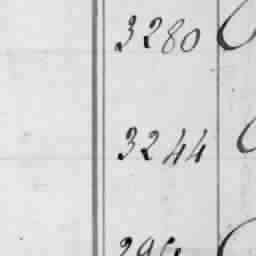 3280
3244